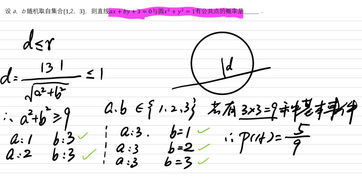 设 a、b随机取自集合{1,2,3}，则直线ax+by+3=0与圆x²+y²=1有公共点的概率是______.
d≤r
d
d=|3|/√(a²+b²)≤1
∴a²+b²≥9
a,b∈{1,2,3}
共有3×3=9种基本事件
a:1 b:3✓
a:2 b:3✓
a:3. b=1✓
a:3 b=2✓
a:3 b=3✓
∴P(A)=5/9